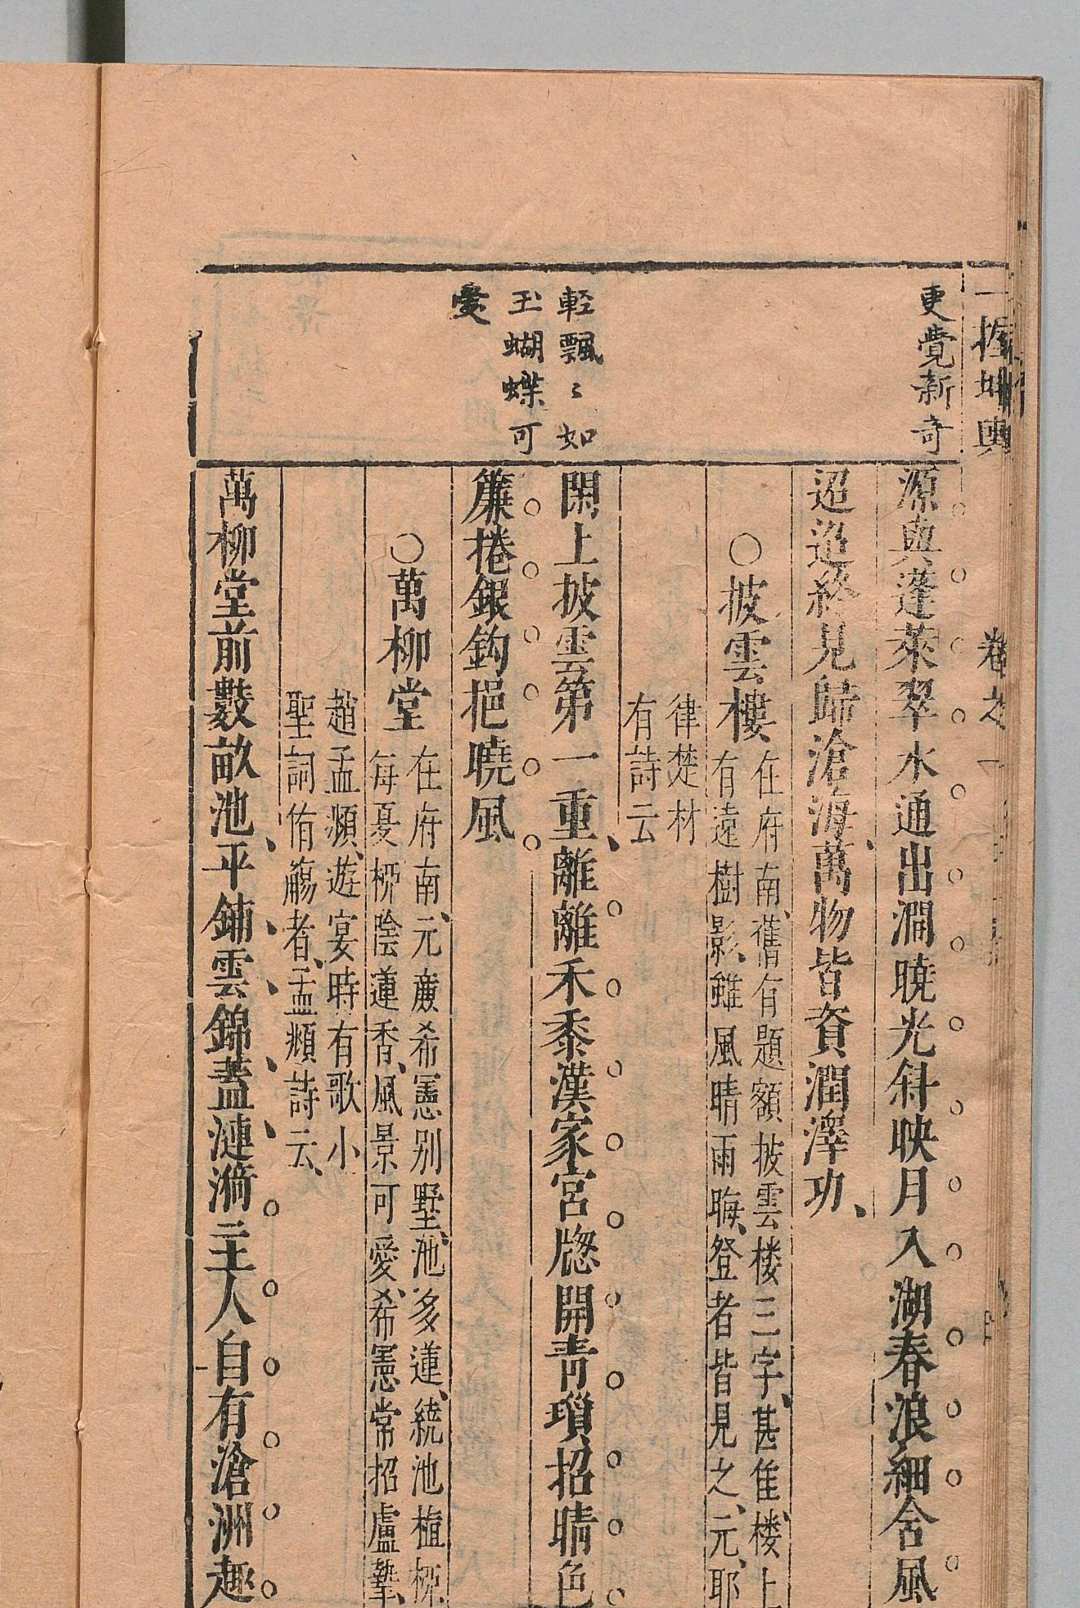 一握坤輿 卷之一
更覺新奇
輕飄〻如
玉蝴蝶可
愛
源與蓬萊翠水通出澗曉光斜映月入湖春浪細含風
迢迢終見歸滄海、萬物皆資潤澤功、
○披雲樓
在府南、舊有題額披雲楼三字、甚隹、楼上
有遠樹影、雖風晴雨晦、登者皆見之、元、耶
律楚材
有詩云
閑上披雲第一重、離離禾黍漢家宮窓開青瑣、招晴色
簾捲銀鈎挹曉風
○萬柳堂
在府南、元廉希憲别墅、池多蓮、繞池植栁
每憂栁陰蓮香、風景可愛、希憲常招盧摯、
趙孟頫、遊宴時有歌小
聖詞侑觴者、孟頫詩云、
萬柳堂前數畝池、平鋪雲錦蓋漣漪主人自有滄洲趣